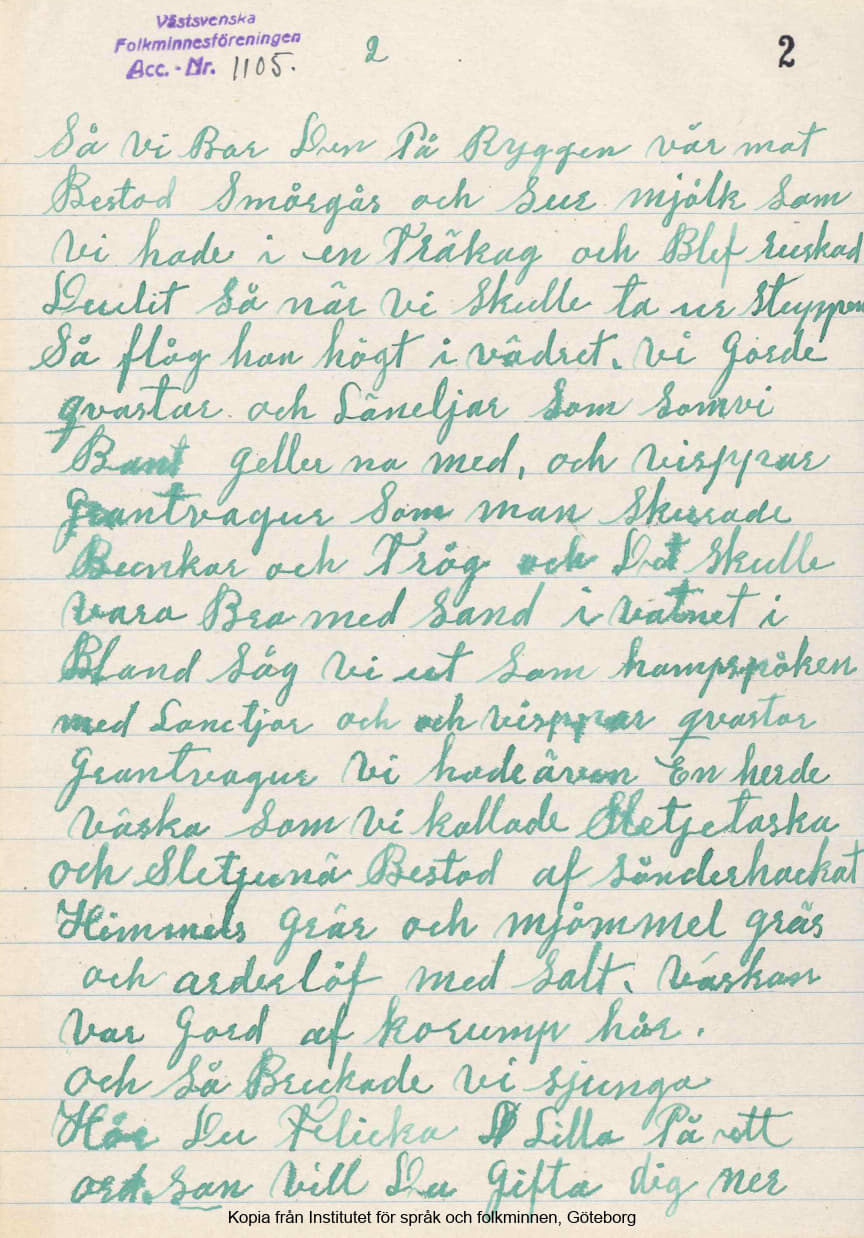 Västsvenska
Folkminnesföreningen
Acc. - Nr. 1105.
2
2
Så vi Bar Den På Ryggen vår mat
Bestod Smörgås och Sur mjölk Som
Vi hade i en Träkag och Blef ruskad
Duulit Så när Vi Skulle ta ur Stuppen
Så flög han högt i vädret. Vi Gorde
qvastar och Läneljar Som Somvi
Bant Geller na med, och visppar
Grantvagur Som man Skurade
Bunkar och Tråg och Det Skulle
vara Bra med Sand i Vatnet i
Bland Såg Vi ut Som hampspöken
med Lanctjar och och visppar qvastar
Grantvagur Vi hade även En herde
väska Som Vi kallade Sletjetaska
och Sletjunä Bestod af Sönderhackat
Himmels Gräs och mjömmel gräs
och arderlöf med Salt. Väskan
Var Gord af korump hår.
och Så Brukade vi sjunga
Hör Du Flicka Lilla På ett
ord. San Vill Du Gifta dig ner
Kopia från Institutet för språk och folkminnen, Göteborg